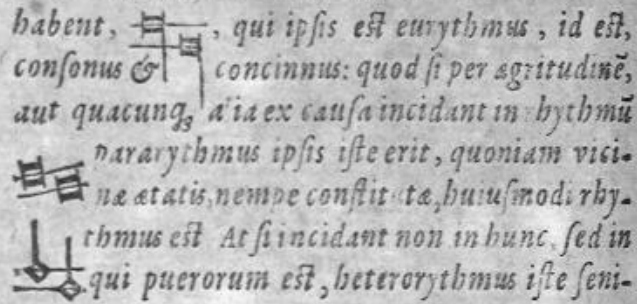 habent, , qui ipſis eſt eurythmus, id eſt,
conſonus & concinnus: quod ſi per ægritudinē,
aut quacunq; alia ex cauſa incidant in rhythmū
pararythmus ipſis iſte erit, quoniam vici-
næ ætatis, nempe conſtitutæ, huiuſmodi rhy-
thmus eſt At ſi incidant non in hunc, ſed in
qui puerorum eſt, heterorythmus iſte ſeni-